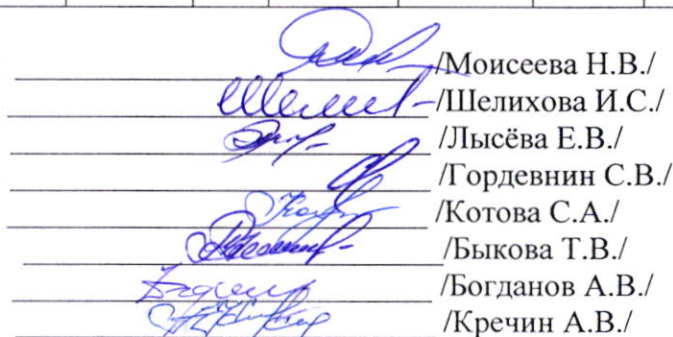 /Моисеева Н.В./
/Шелихова И.С./
/Лысёва Е.В./
/Гордевнин С.В./
/Котова С.А./
/Быкова Т.В./
/Богданов А.В./
/Кречин А.В./